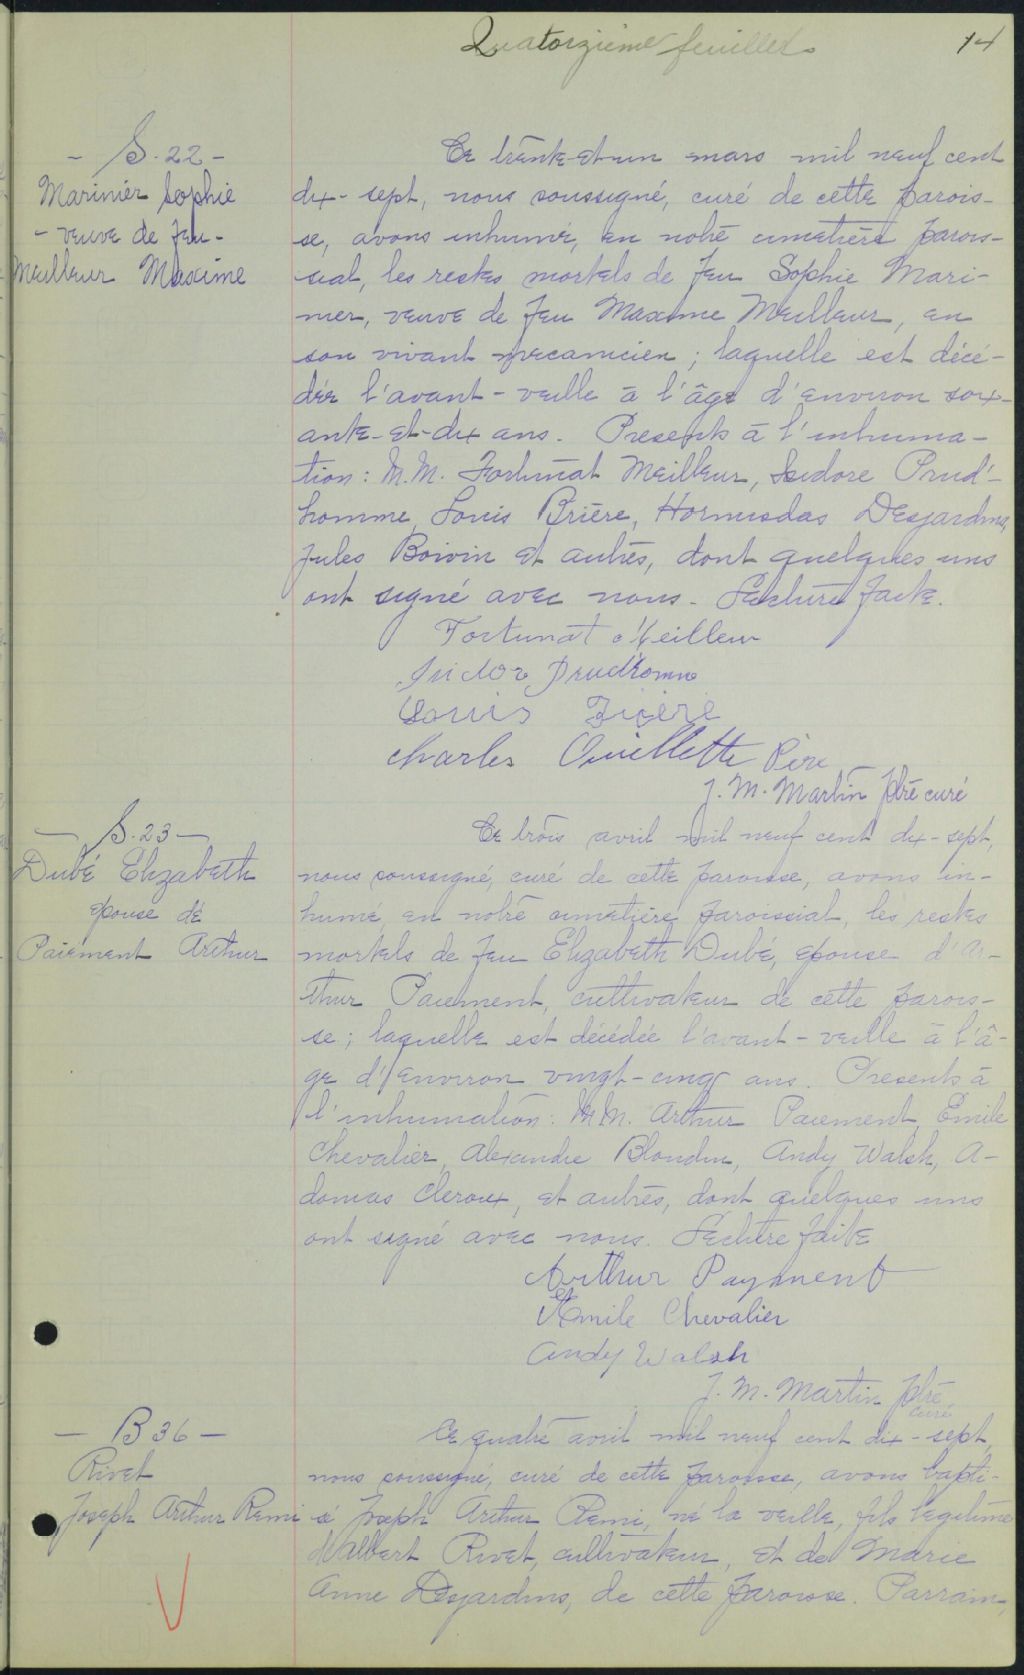 Quatorzième feuillet.
14
- S. 22 -
Marinier Sophie
- veuve de feu -
Meilleur Maxime
Ce trente-et-un mars mil neuf cent
dix-sept, nous soussigné, curé de cette parois-
se, avons inhumé, en notre cimetière parois-
sial, les restes mortels de feu Sophie Mari-
nier, veuve de feu Maxime Meilleur, en
son vivant mecanicien ; laquelle est décé-
dée l'avant-veille à l'âge d'environ soix-
ante-et-dix ans. Presents à l'inhuma-
tion : M.M. Fortunat Meilleur, Isidore Prud'-
homme, Louis Brière, Hormisdas Desjardins,
Jules Boivin et autres, dont quelques uns
ont signé avec nous. Lecture faite.
Fortunat Meilleur
Isidor Prudhomme
Louis
Charles Ouellette Père
J. M. Martin ptre curé
- S. 23 -
Dubé Elizabeth
epouse de
Paiement Arthur
Ce trois avril mil neuf cent dix-sept,
nous soussigné, curé de cette paroisse, avons in-
humé, en notre cimetière paroissial, les restes
mortels de feu Elizabeth Dubé, epouse d'Ar-
thur Paiement, cultivateur de cette parois-
se ; laquelle est décédée l'avant-veille à l'â-
ge d'environ vingt-cinq ans. Presents à
l'inhumation : M.M. Arthur Paiement, Emile
Chevalier, Alexandre Blondin, Andy Walsh, A-
domas Cleroux, et autres, dont quelques uns
ont signé avec nous. Lecture faite
Arthur Payment
Emile Chevalier
Andy Walsh
J. M. Martin ptre
curé
- B 36 -
Rivet
Joseph Arthur Remi
Ce quatre avril mil neuf cent dix-sept,
nous soussigné, curé de cette paroisse, avons bapti-
sé Joseph Arthur Remi, né la veille, fils légitime
d'Albert Rivet, cultivateur, et de Marie
Anne Desjardins, de cette paroisse. Parrain,